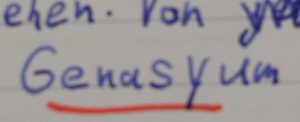 ehen. Von
Genasyum